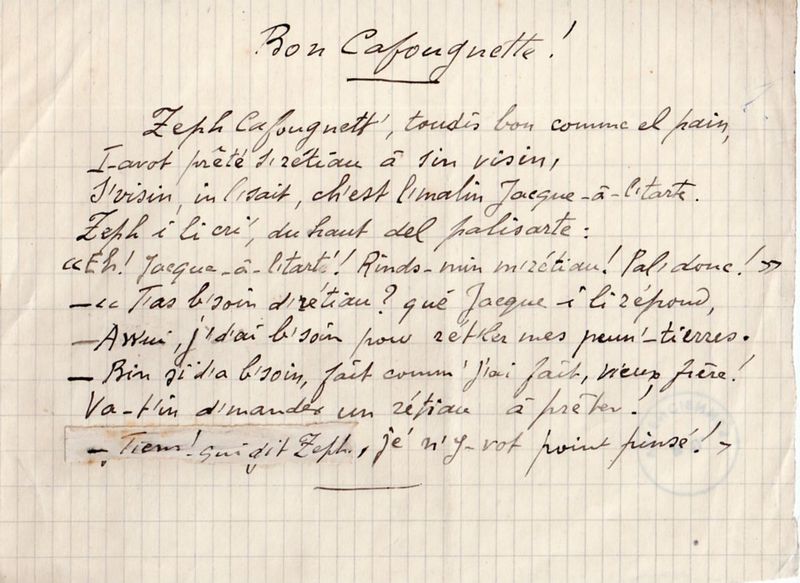 Bon Cafougnette!
Zeph Cafougnett', toudis bon comme el pain,
I-avot prêté s'rétiau à sin visin,
S'visin, in l'sait, ch'est l'malin Jacque-à-l'tarte.
Zeph i li cri', du haut del palisarte:
«Eh! Jacque-à-l'tarte! Rinds-min m'rétiau! Pal'donc!»
—«T'as b'soin d'rétiau? qué Jacque-i li répond,
—Awui, j'd'ai b'soin pour rét'ler mes peun'-tierres.
—Bin si d'a b'soin, fait comm' j'ai fait, vieux frère!
Va-t'in d'mander un rétiau à prêter!
—Tiens! qui dit Zeph, jé n'y-vot point pinsé!»